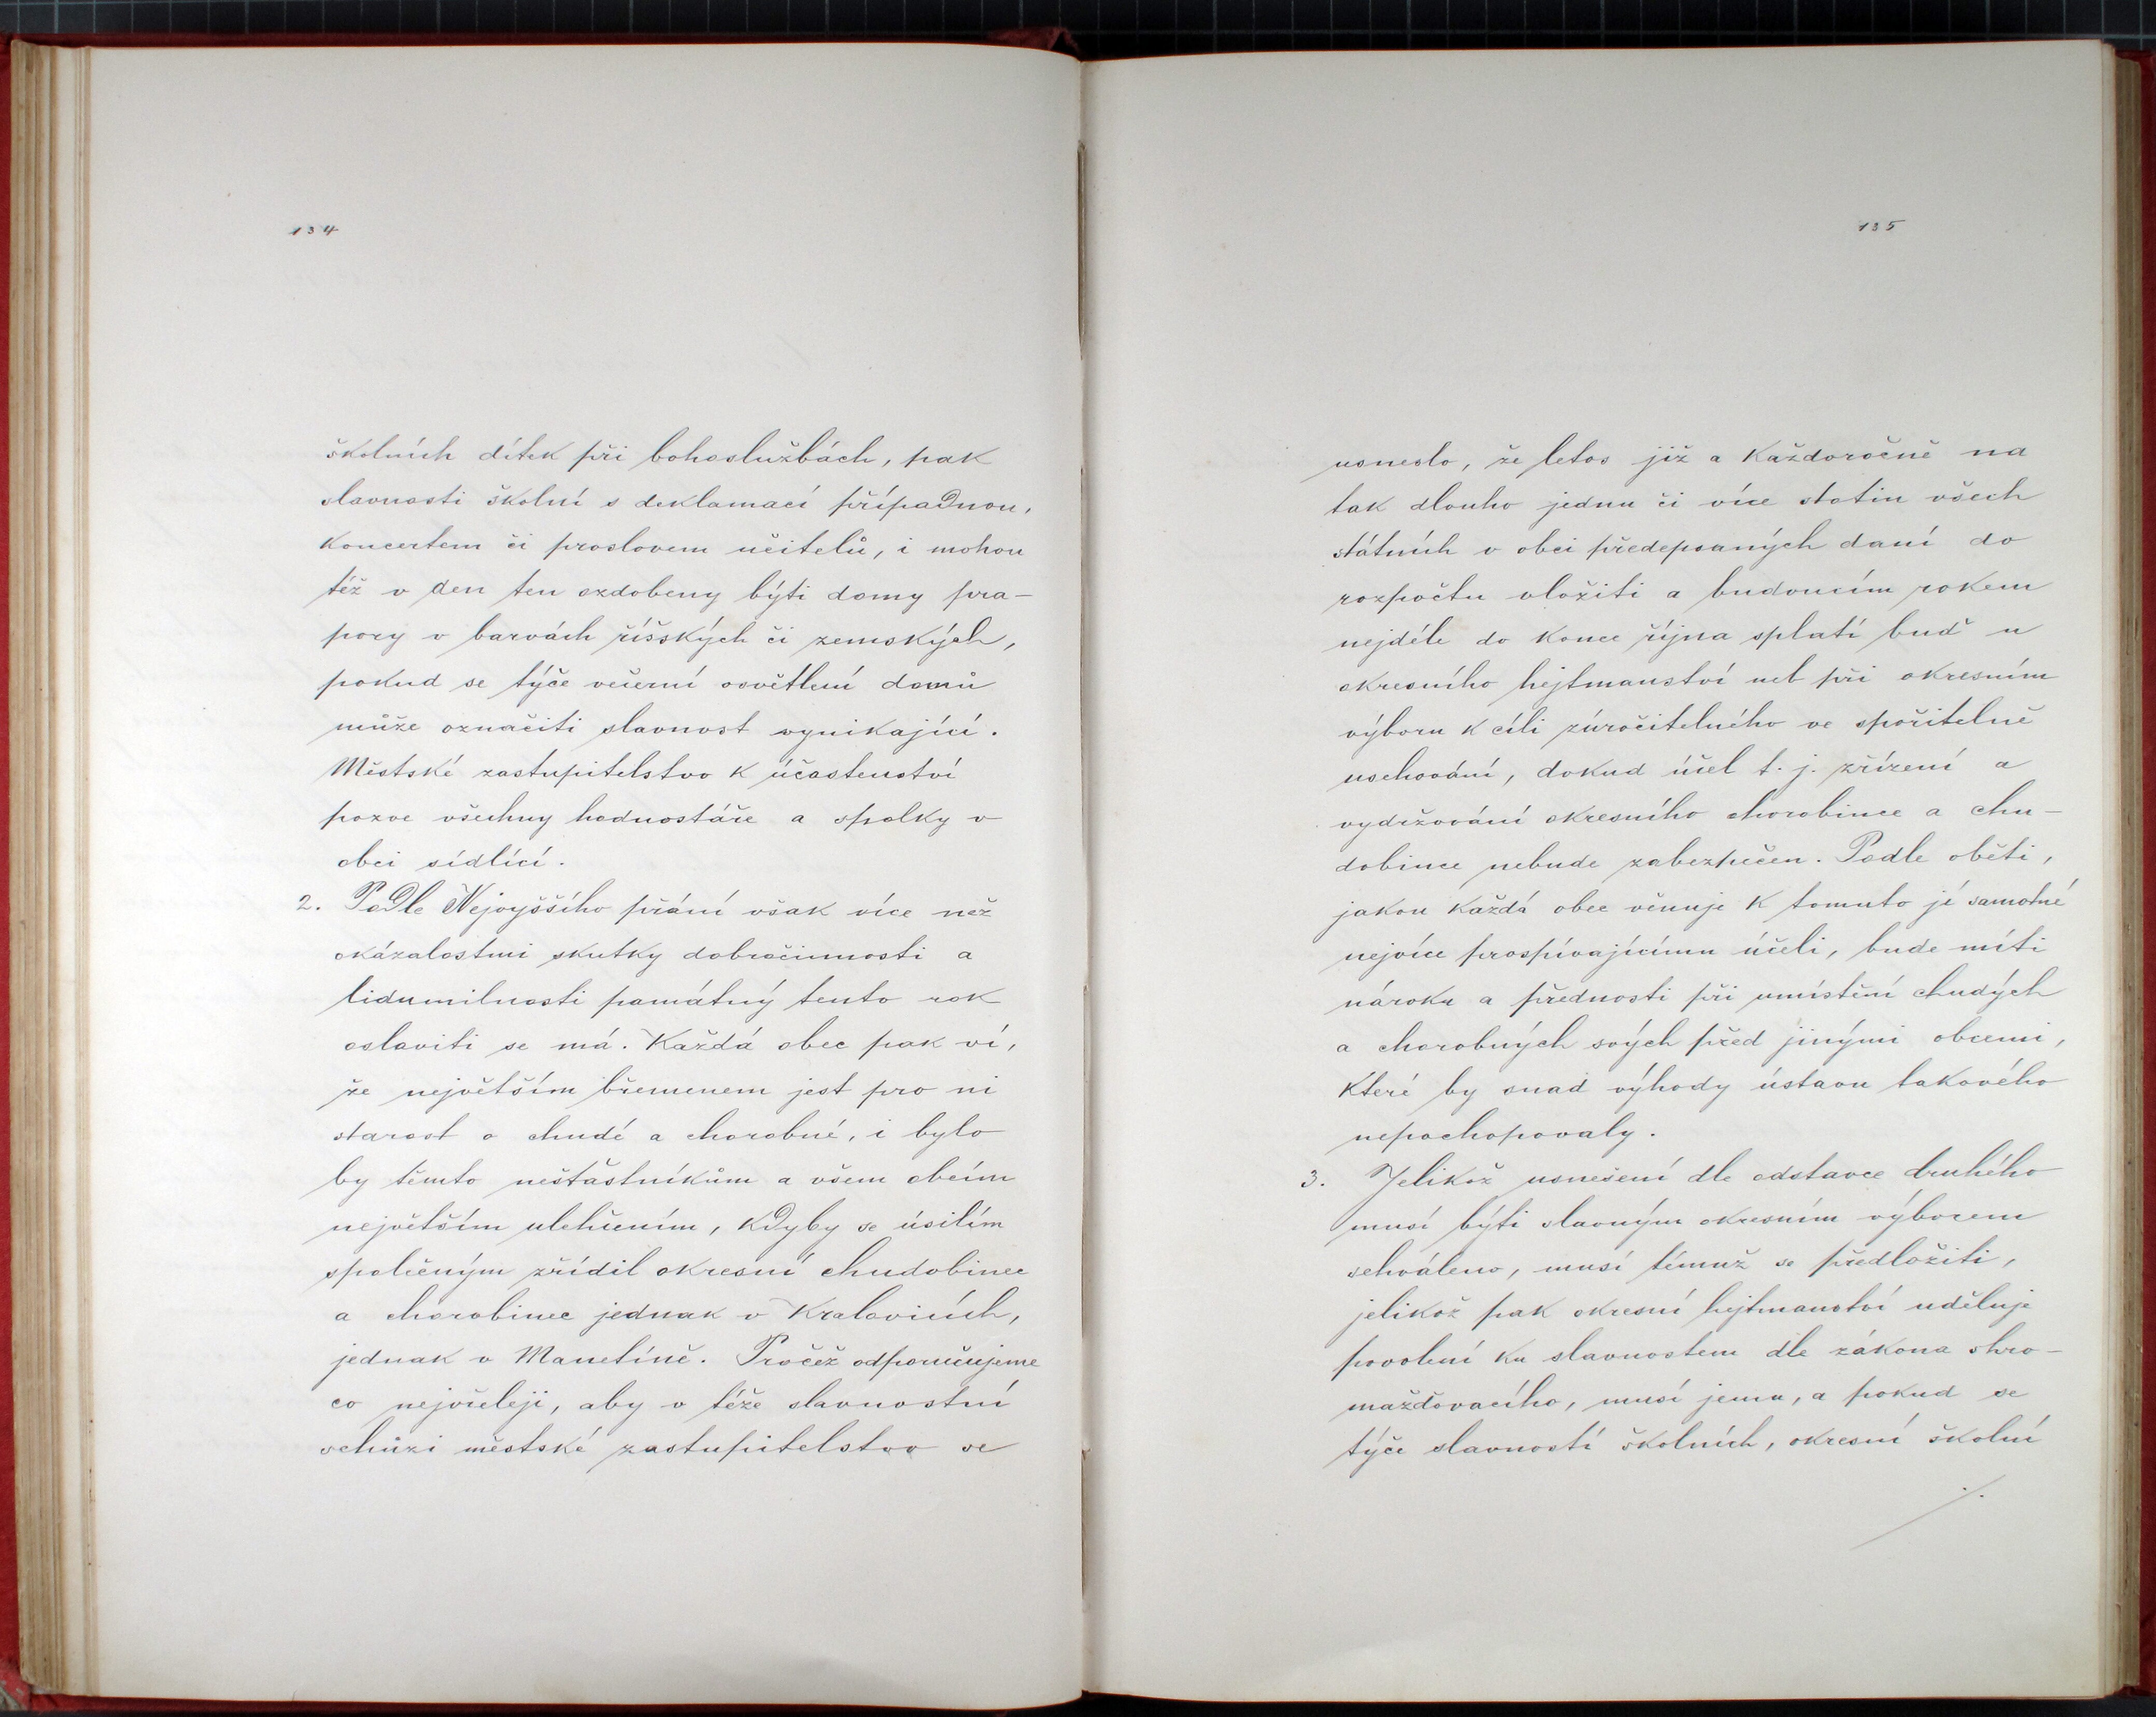 134
školních dítek při bohoslužbách, pak
slavnosti školní s deklamací případnou,
koncertem či proslovem učitelů, i mohou
též v den ten ozdobeny býti domy pra-
pory v barvách říšských či zemských,
pokud se týče večerní osvětlení domů
může označiti slavnost vynikající.
Městské zastupitelstvo k účastenství
pozve všechny hodnostáře a spolky v
obci sídlící.
2. Podle Nejvyššího přání však více než
okázalostmi skutky dobročinnosti a
lidumilnosti památný tento rok
oslaviti se má. Každá obec pak ví,
že největším břemenem jest pro ni
starost o chudé a chorobné, i bylo
by těmto nešťastníkům a všem obcím
největším ulehčením, kdyby se úsilím
společným zřídil okresní chudobinec
a chorobinec jednak v Kralovicích,
jednak v Manetíně. Pročež odporučujeme
co nejvřeleji, aby v téže slavnostní
schůzi městské zastupitelstvo se
135
usneslo, že letos již a každoročně na
tak dlouho jednu či více stotin všech
státních v obci předepsaných daní do
rozpočtu vložiti a budoucím rokem
nejdéle do konce října splatí buď u
okresního hejtmanství neb při okresním
výboru k cíli zúročitelného ve spořitelně
uschování, dokud účel t. j. zřízení a
vydržování okresního chorobince a chu-
dobince nebude zabezpečen. Podle oběti,
jakou každá obec věnuje k tomuto jé samotné
nejvíce prospívajícímu účeli, bude míti
nároku a přednosti při umístění chudých
a chorobných svých před jinými obcemi,
které by snad výhody ústavu takového
nepochopovaly.
3. Jelikož usnešení dle odstavce druhého
musí býti slavným okresním výborem
schváleno, musí témuž se předložiti,
jelikož pak okresní hejtmanství uděluje
povolení ku slavnostem dle zákona shro-
mažďovacího, musí jemu, a pokud se
týče slavností školních, okresní školní
./.